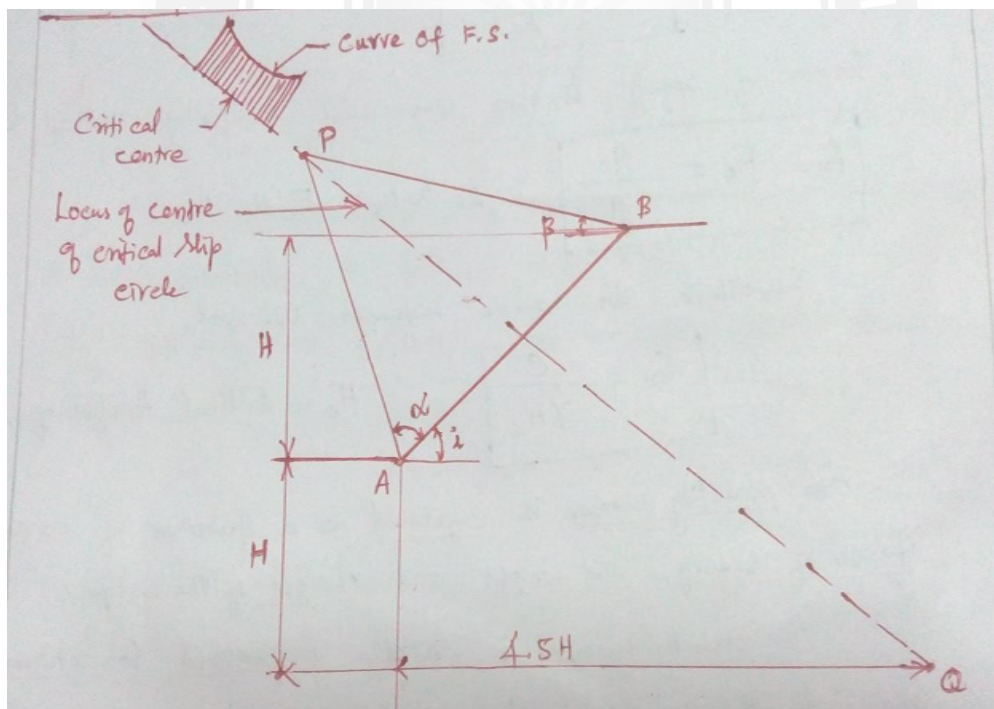 Curve of F.S.
Critical
centre
P
Locus of centre
of critical slip
circle
B
β
H
α
i
A
H
4.5H
Q